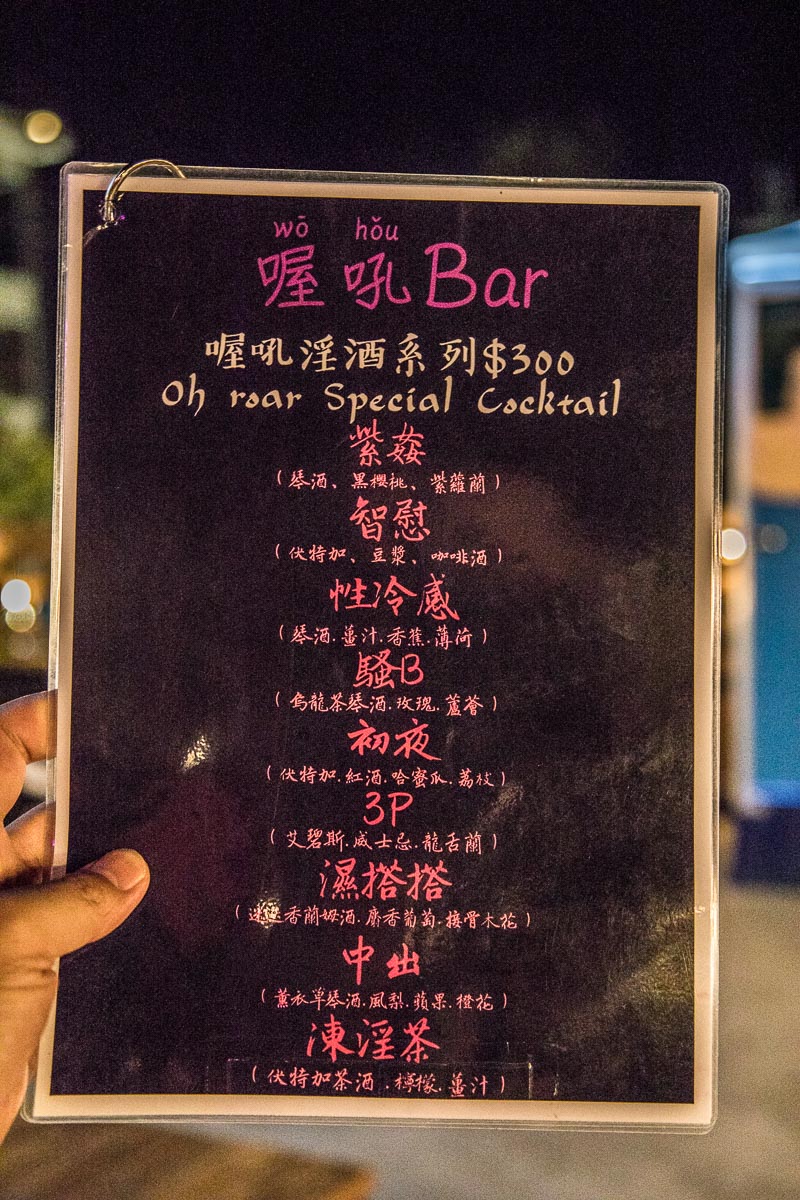 wō hǒu
喔吼Bar
喔吼淫酒系列$300
Oh roar Special Cocktail
紫姦
(琴酒、黑櫻桃、紫蘿蘭)
智慰
(伏特加、豆漿、咖啡酒)
性冷感
(琴酒.薑汁.香蕉.薄荷)
騷B
(烏龍茶琴酒.玫瑰.蘆薈)
初夜
(伏特加.紅酒.哈蜜瓜.荔枝)
3P
(艾碧斯.威士忌.龍舌蘭)
濕搭搭
(迷迭香蘭姆酒.麝香葡萄.接骨木花)
中出
(薰衣草琴酒.鳳梨.蘋果.橙花)
凍淫茶
(伏特加茶酒.檸檬.薑汁)